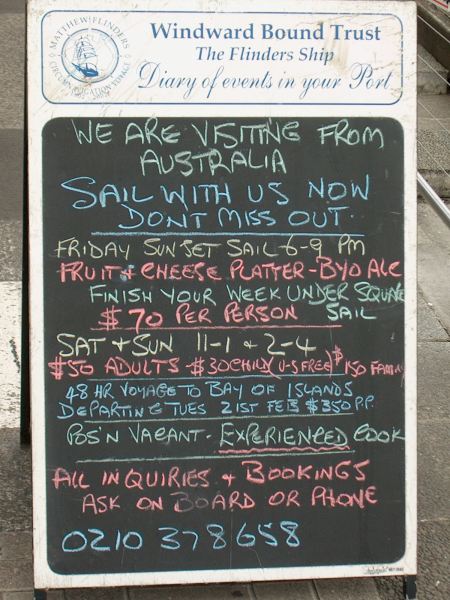 MATTHEW FLINDERS
Windward Bound Trust
The Flinders Ship
Diary of events in your Port
WE ARE VISITING FROM
AUSTRALIA
SAIL WITH US NOW
DONT MISS OUT.
FRIDAY SUNSET SAIL 6-9 PM
FRUIT + CHEESE PLATTER - BYO ALC
FINISH YOUR WEEK UNDER SQUARE
SAIL
$70 PER PERSON
SAT + SUN 11-1 & 2-4
$50 ADULTS - $30 CHILD (U-5 FREE) $150 FAMILY
48 HR VOYAGE TO BAY OF ISLANDS
DEPARTING TUES 21ST FEB $350 P.P.
POS'N VACANT - EXPERIENCED COOK
ALL INQUIRIES + BOOKINGS
ASK ON BOARD OR PHONE
0210 378658